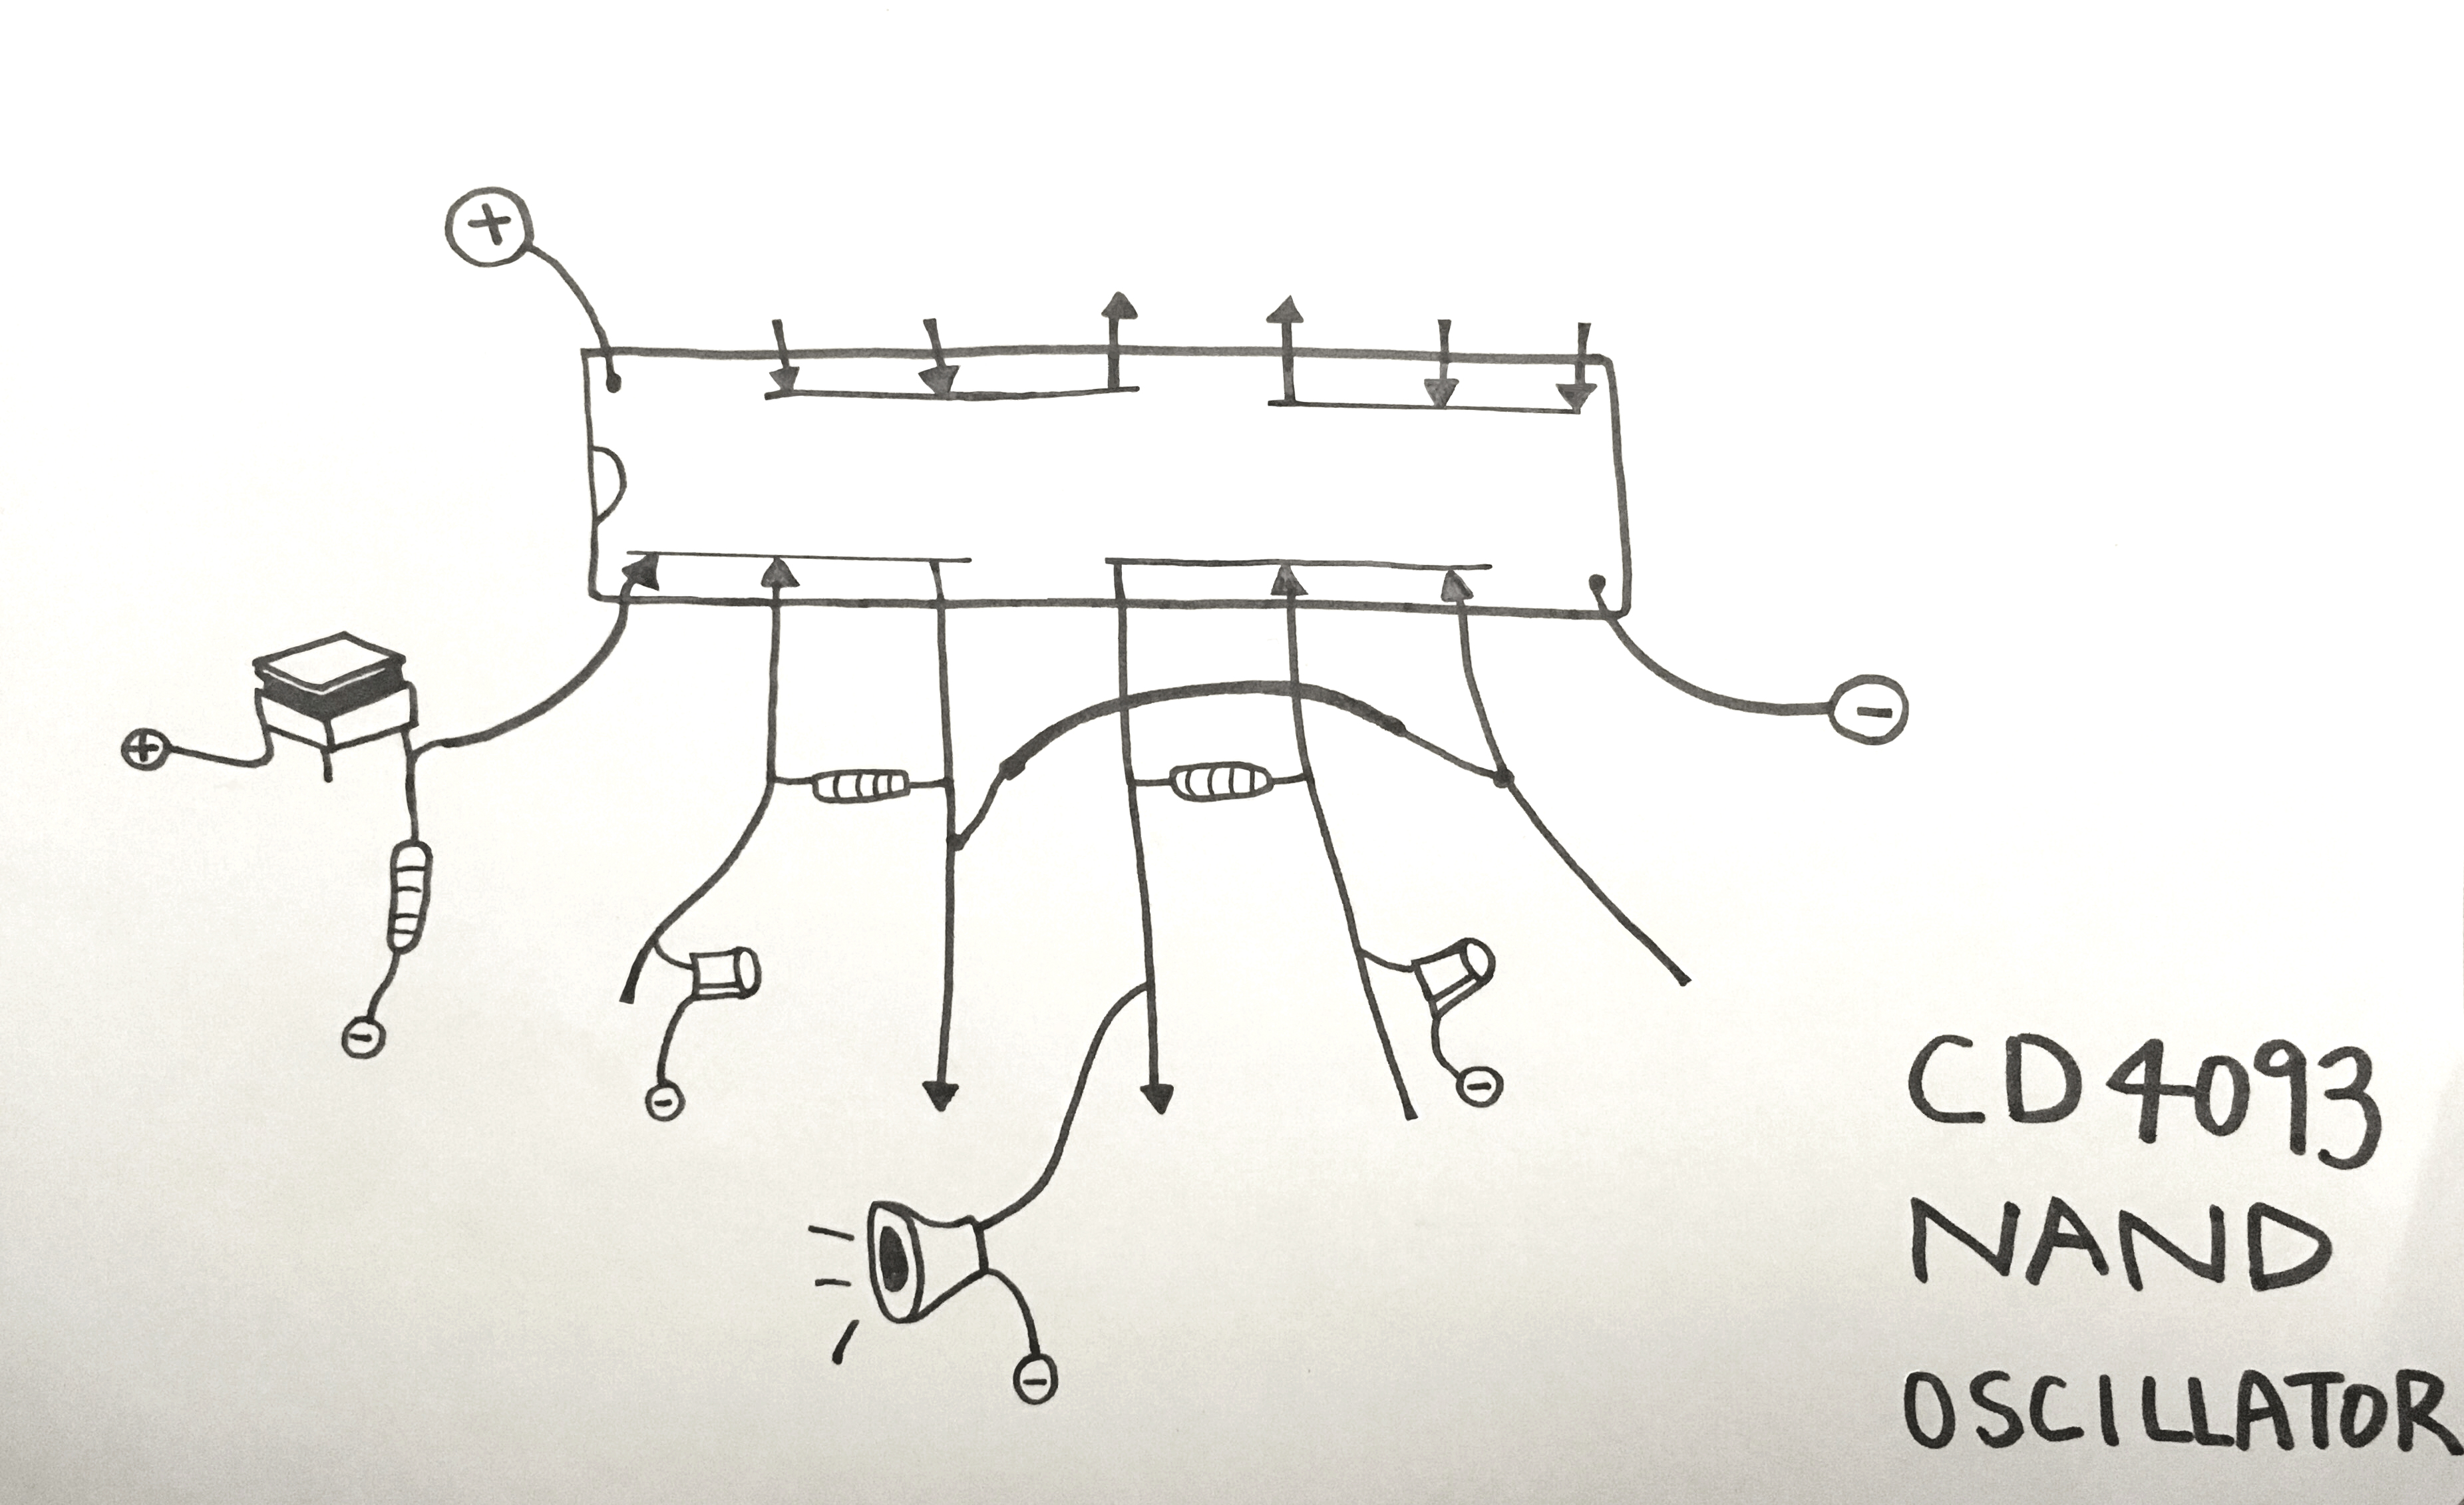 +
+
-
-
-
-
-
CD4093
NAND
OSCILLATOR